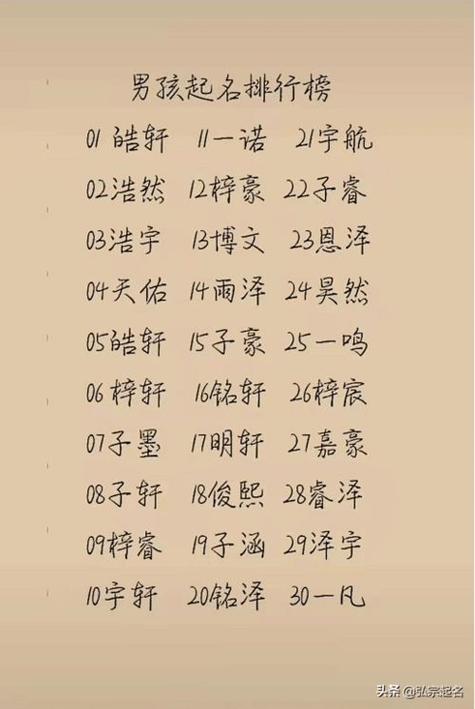 男孩起名排行榜
01 皓轩 11一诺 21宇航
02浩然 12梓豪 22子睿
03浩宇 13博文 23恩泽
04天佑 14雨泽 24昊然
05皓轩 15子豪 25一鸣
06梓轩 16铭轩 26梓宸
07子墨 17明轩 27嘉豪
08子轩 18俊熙 28睿泽
09梓睿 19子涵 29泽宇
10宇轩 20铭泽 30一凡
头条 @弘宗起名